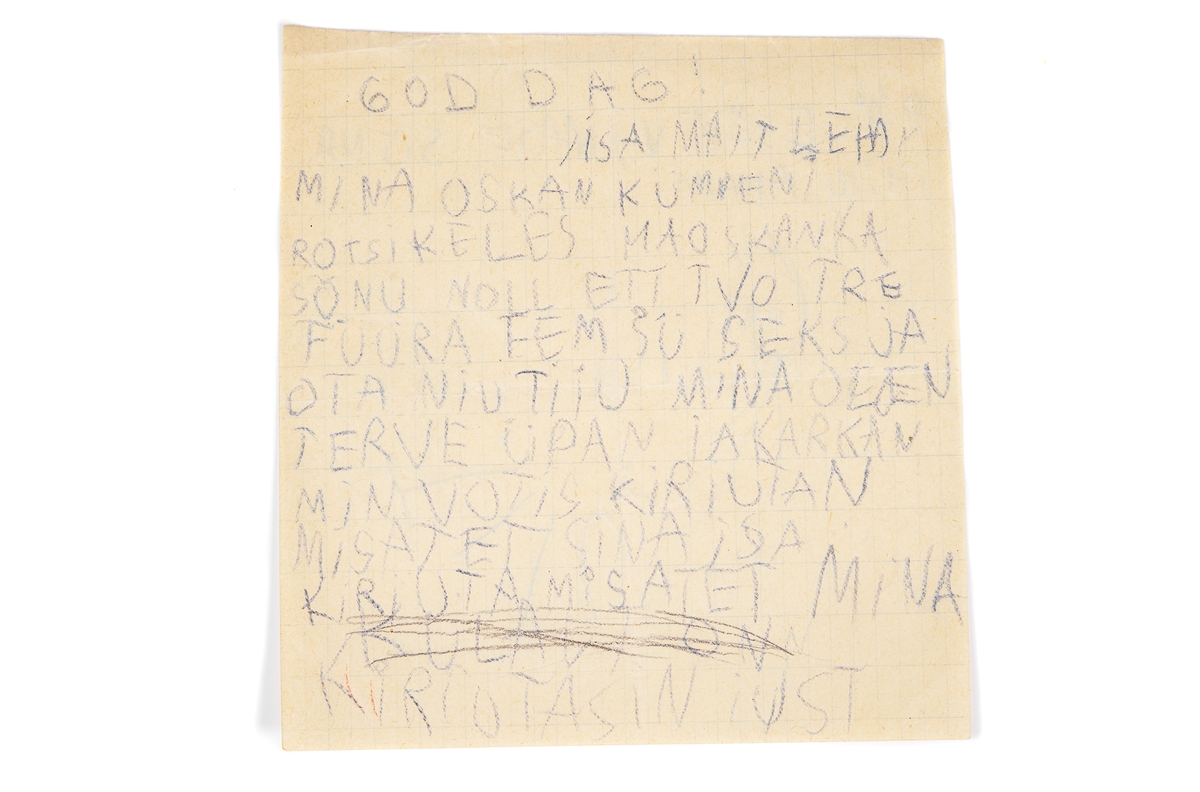 GOD DAG!
ISA MAIT
MINA OSKAN KÜMNENI
ROTSIKELES MAOSKANKA
SÖNU NOLL ETT TVO TRE
FÜÜRA FEM SÜ SEKS JA
OTA NIU TIIU MINA OLEN
TERVE ÜPAN JAKARKAN
MIN VOTIS KIRJUTAN
MISATET SINA ISA
KIRJUTA MISATET MINA
KIRIOTASIN IUST